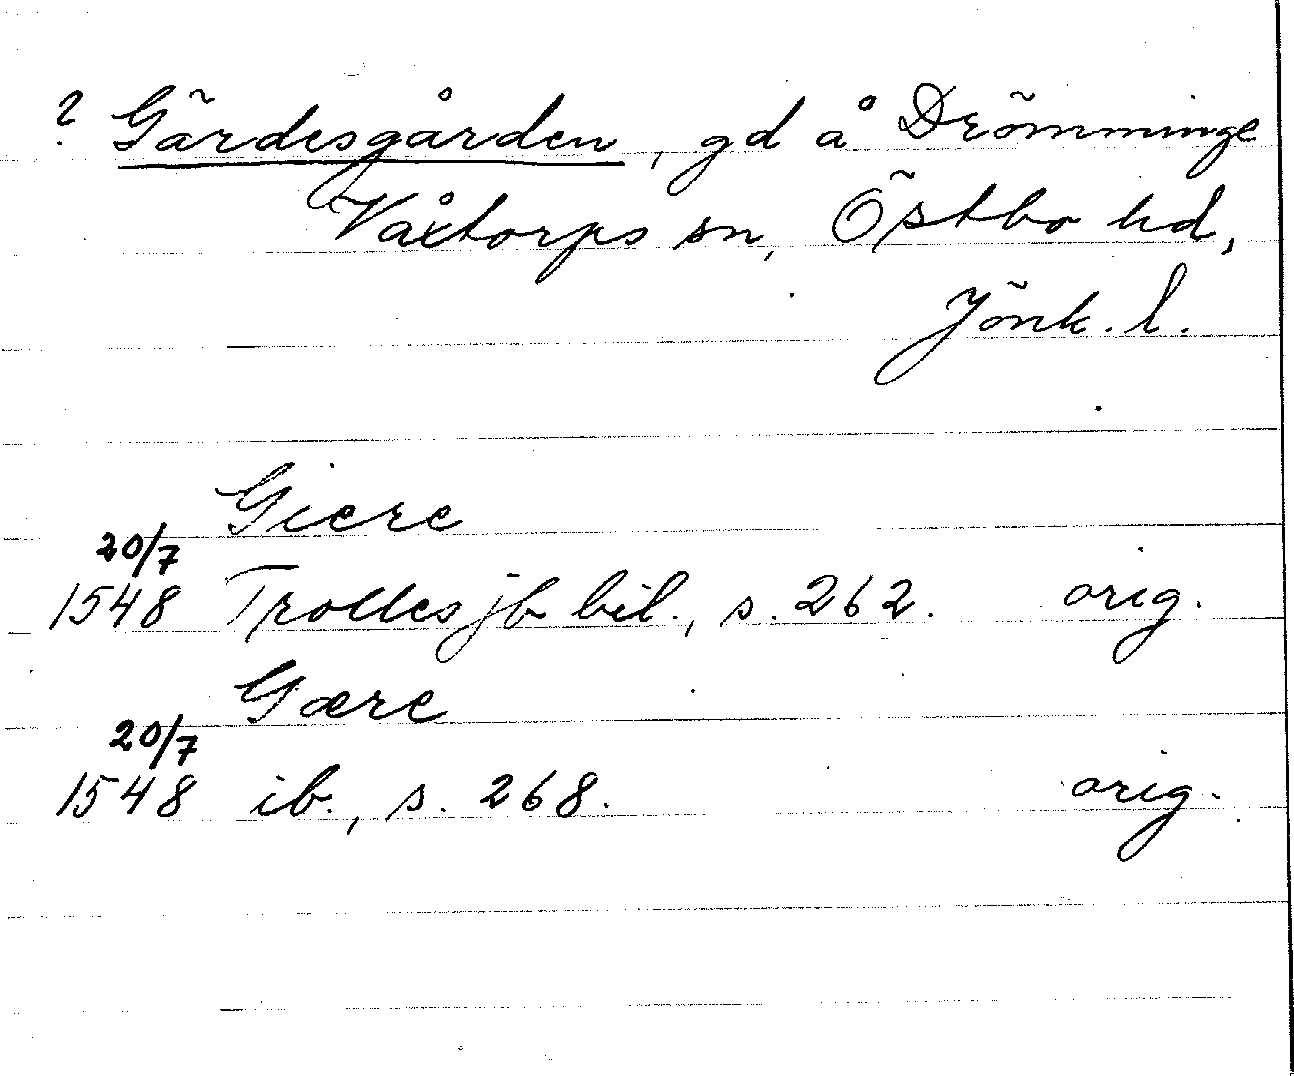 ? Gärdesgården, gd å Drömminge
Våxtorps sn, Östbo hd,
Jönk. l.
Giere
20/7
1548 Trolles jb bil., s. 262. orig.
Gære
20/7
1548 ib., s. 268. orig.